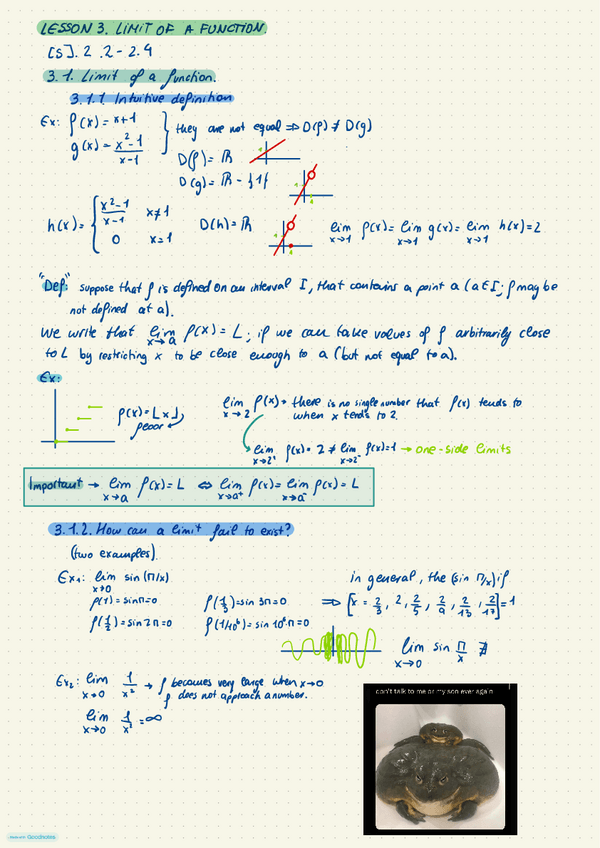 LESSON 3. LIMIT OF A FUNCTION.
[S]. 2.2 - 2.4
3.1. Limit of a function.
3.1.1 Intuitive definition
Ex: f(x) = x+1
g(x) = x²-1/x-1
they are not equal ⇒ D(f) ≠ D(g)
D(f) = ℝ
D(g) = ℝ - {1}
h(x) = { x²-1/x-1 x≠1
0 x=1
D(h) = ℝ
lim x→1 f(x) = lim x→1 g(x) = lim x→1 h(x) = 2
"Def:" suppose that f is defined on an interval I, that contains a point a (a∈I; f may be
not defined at a).
We write that lim x→a f(x) = L; if we can take values of f arbitrarily close
to L by restricting x to be close enough to a (but not equal to a).
Ex:
f(x) = ⌊x⌋
floor
lim x→2 f(x) → there is no single number that f(x) tends to
when x tends to 2.
lim x→2⁺ f(x) = 2 ≠ lim x→2⁻ f(x) = 1 → one-side limits
Important → lim x→a f(x) = L ⇔ lim x→a⁺ f(x) = lim x→a⁻ f(x) = L
3.1.2. How can a limit fail to exist?
(two examples).
Ex₁: lim x→0 sin(π/x)
f(1) = sin π = 0
f(1/2) = sin 2π = 0
f(1/3) = sin 3π = 0
f(1/10⁶) = sin 10⁶π = 0
in general, the (sin π/x) if
⇒ [x = 2/3, 2, 2/5, 2/9, 2/13, 2/17] = 1
lim x→0 sin π/x ∄
Ex₂: lim x→0 1/x² → f becomes very large when x→0
f does not approach a number.
lim x→0 1/x² = ∞
don't talk to me or my son ever again
Made with Goodnotes